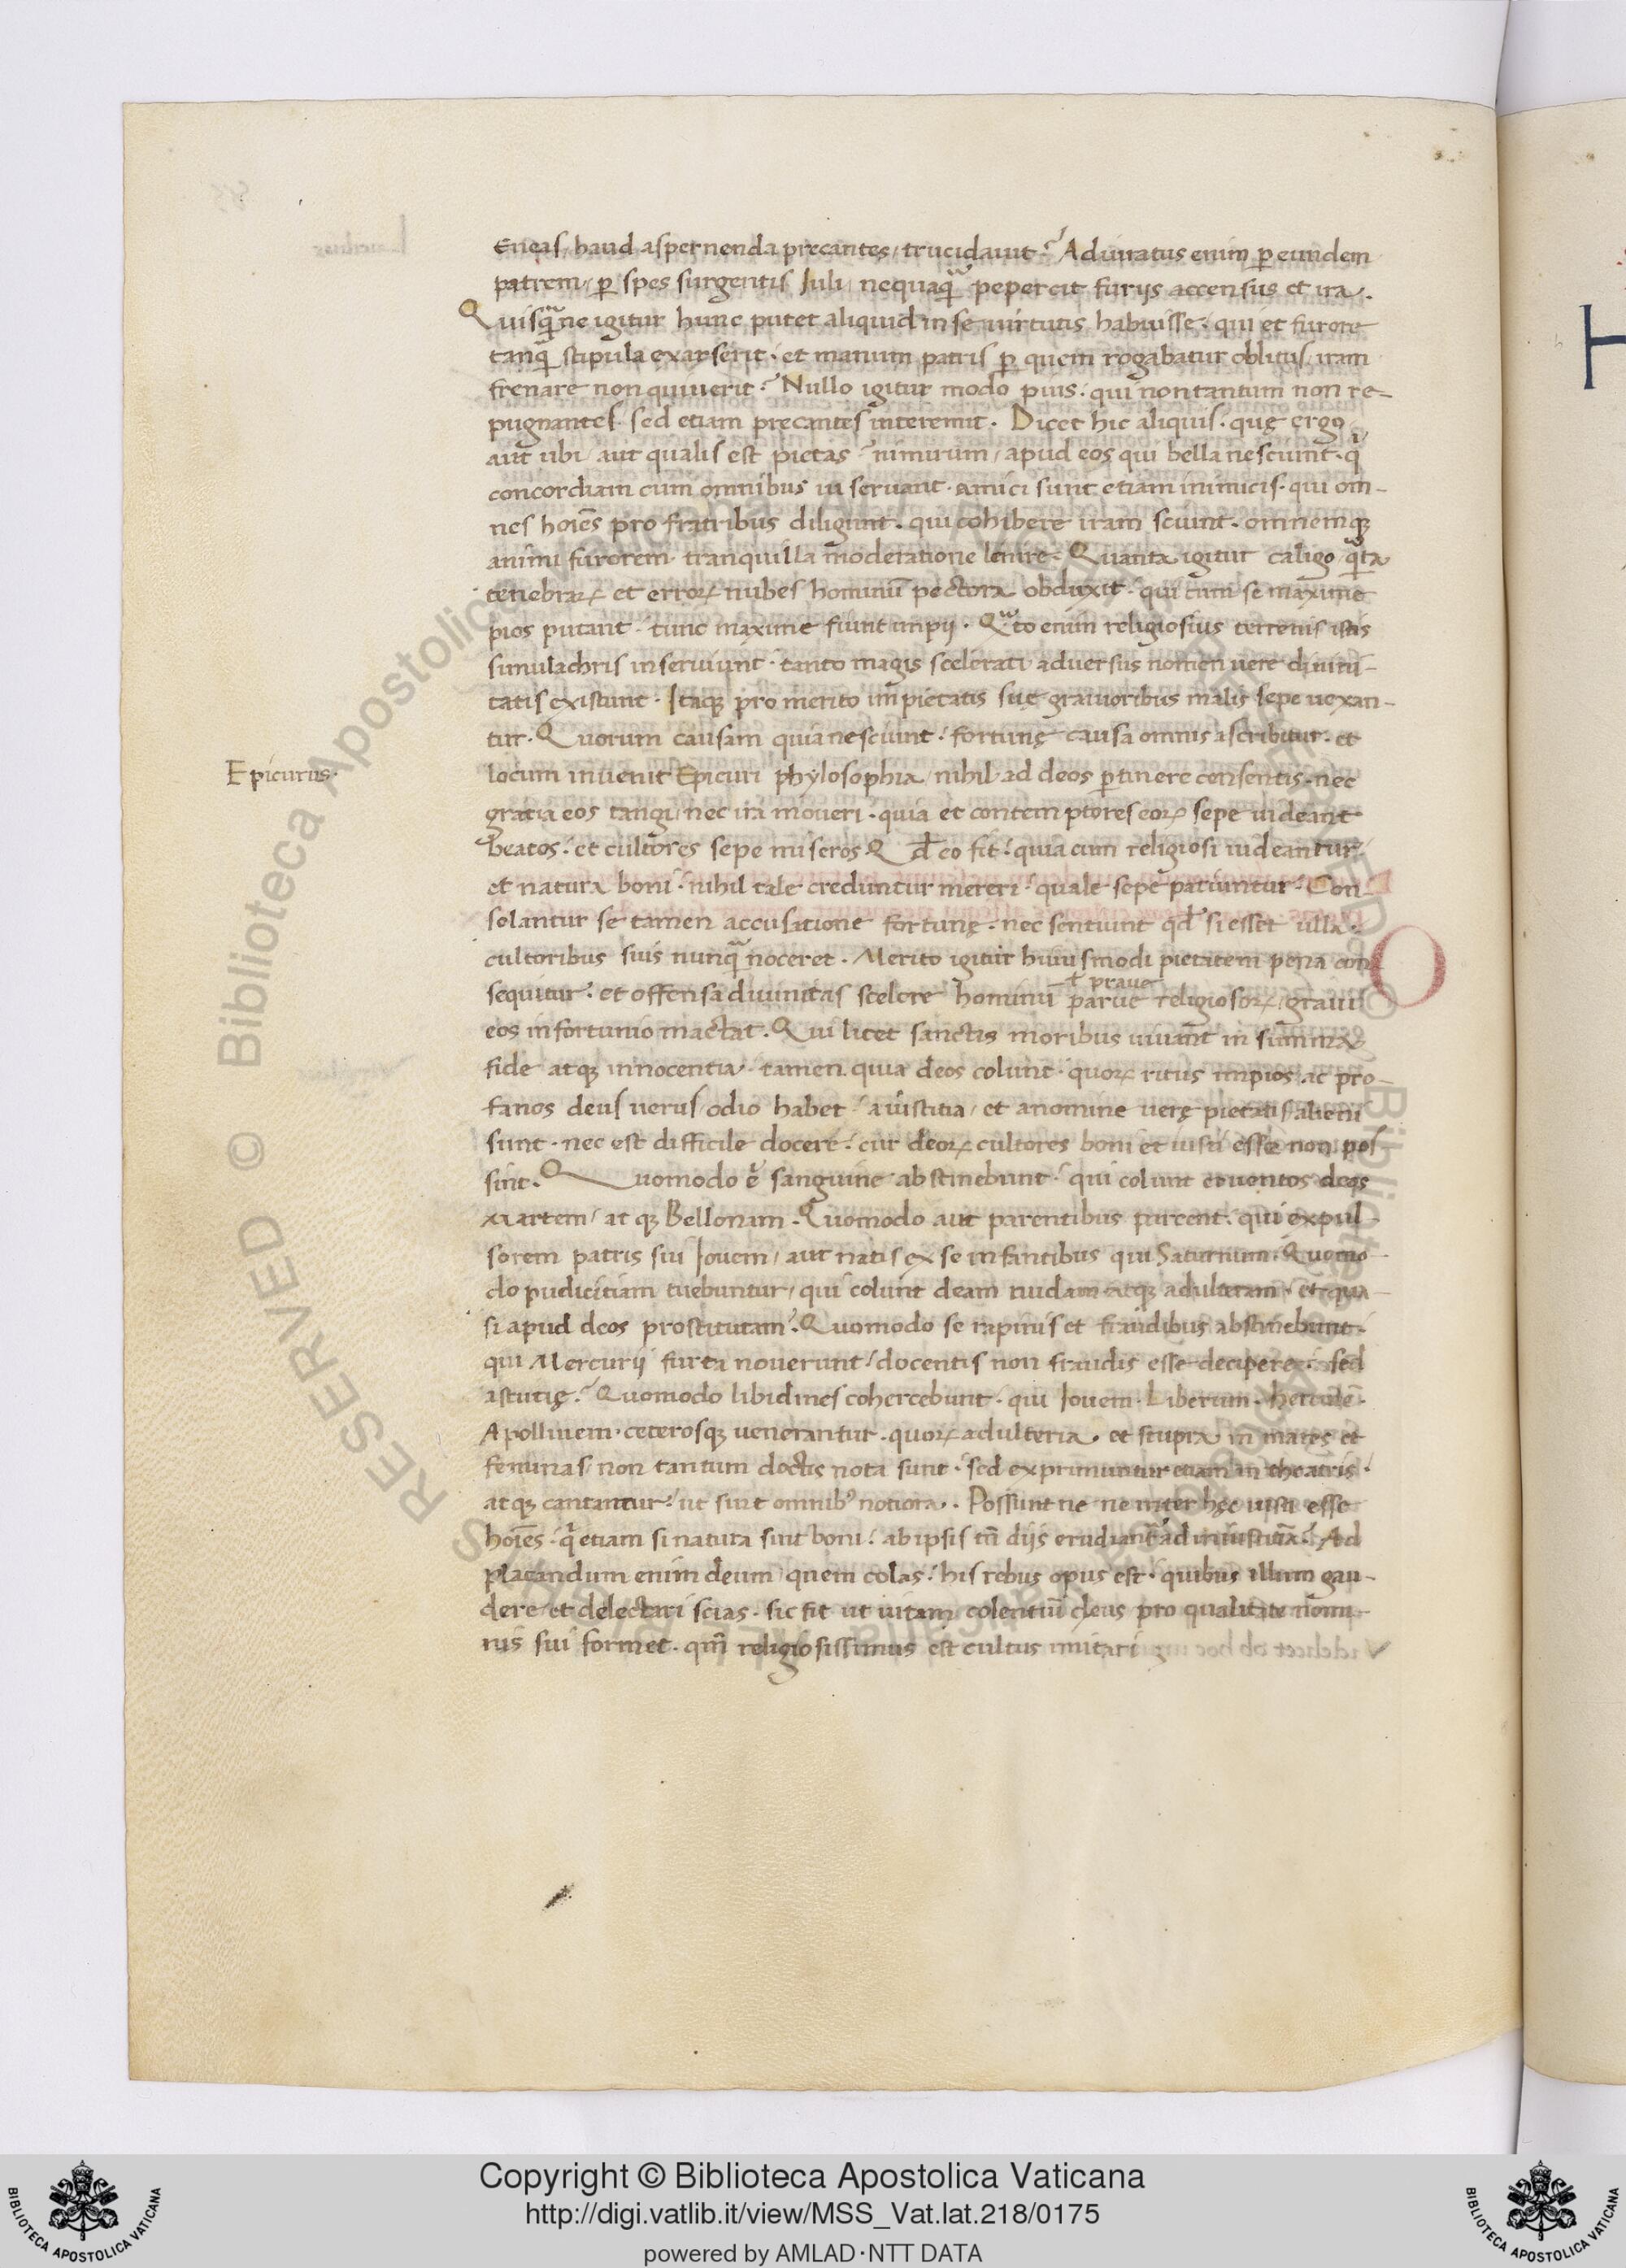 Eneas / haud aspernenda precantes / trucidauit? Adiuratus enim ꝑ eundem
patrem / ꝑ spes surgentis Iuli / nequaꝗ̃ pepercit furijs accensus et ira.
Quisꝗ̃ne igitur hunc putet aliquid in se uirtutis habuisse / qui et furore
tanꝗ̃ stipula exarserit · et manum patris ꝑ quem rogabatur oblitus / iram
frenare non quiuerit? Nullo igitur modo pius · qui non tantum non re-
pugnantes · sed etiam precantes interemit. Dicet hic aliquis · quę ergo
aut ubi / aut qualis est pietas? nimirum / apud eos qui bella nesciunt · qⁱ
concordiam cum omnibus seruant · amici sunt etiam inimicis · qui om-
nes hoı̃es pro fratribus diligunt · qui cohibere iram sciunt · omnemqꝫ
animi furorem tranquilla moderatione lenire. Quanta igitur caligo ꝗ̃ta
tenebraꝝ et erroꝝ nubes hominũ pectora obduxit · qui cum se maxime
pios putant · tunc maxime fiunt impij. Qᵃ̃to enim religiosius terrenis istis
simulachris inseruiunt · tanto magis scelerati aduersus nomen uere diuini-
tatis existunt. Itaqꝫ pro merito impietatis suę grauioribus malis sepe uexan-
tur. Quorum causam quia nesciunt · fortunę causa omnis ascribitur · et
Epicurus ·
locum inuenit Epicuri phylosophia / nihil ad deos ꝑtinere consentis · nec
gratia eos tangi / nec ira moueri · quia et contemptores eoꝝ sepe uideant
beatos · et cultores sepe miseros. Qđ eo fit · quia cum religiosi uideantur
et natura boni · nihil tale creduntur mereri · quale sepe patiuntur. Con-
solantur se tamen accusatione fortunę · nec sentiunt qđ si esset ulla ·
cultoribus suis nunꝗ̃ noceret. Merito igitur huiusmodi pietatem pena con
ł praue
sequitur · et offensa diuinitas scelere hominũ parue religiosoꝝ / graui
eos infortunio mactat. Qui licet sanctis moribus uiuant in summa
fide atqꝫ innocentia · tamen quia deos colunt · quoꝝ ritus impios ac pro-
fanos deus uerus odio habet · a iustitia / et a nomine uerę pietatis alieni
sunt · nec est difficile docere · cur deoꝝ cultores boni et iusti esse non pos
sint. Quomodo ẽ sanguine abstinebunt · qui colunt cruentos deos
Martem / atqꝫ Bellonam. Quomodo aut parentibus parcent · qui expul-
sorem patris sui Iouem / aut natis ex se infantibus qui Saturnum. Quomo-
do pudicitiam tuebuntur / qui colunt deam nudam atqꝫ adulteram · et qua-
si apud deos prostitutam? Quomodo se rapinis et fraudibus abstinebunt ·
qui Mercurij furta nouerunt / docentis non fraudis esse decipere · sed
astutię? Quomodo libidines cohercebunt · qui Iouem · Liberum · herculẽ ·
Apollinem · ceterosqꝫ uenerantur · quoꝝ adulteria et stupra in mares et
feminas / non tantum doctis nota sunt · sed exprimuntur etiam in theatris ·
atqꝫ cantantur · ut sint omnibꝰ notiora. Possunt ne ne inter hęc iusti esse
hoı̃es · qⁱ etiam si natura sint boni · ab ipsis tñ dijs erudiant̃ ad iniustitiã? Ad
placandum enim deum quem colas · his rebus opus est · quibus illum gau-
dere et delectari scias · sic fit ut uitam colentiũ deus pro qualitate nomi
nis sui formet · qm̃ religiosissimus est cultus imitari
Copyright © Biblioteca Apostolica Vaticana
http://digi.vatlib.it/view/MSS_Vat.lat.218/0175
powered by AMLAD·NTT DATA